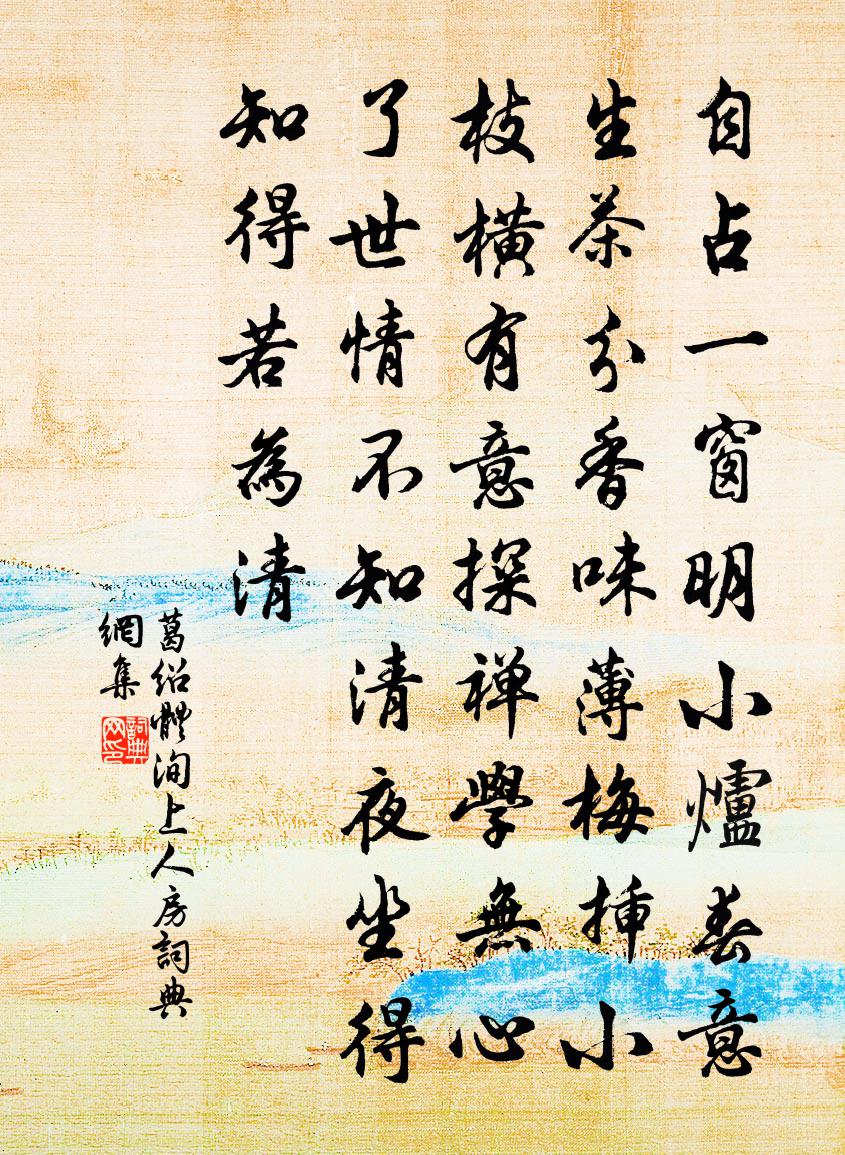 自占一窗明小爐春意
生茶分香味薄梅插小
枝橫有意探禅學無心
了世情不知清夜坐得
知得若為清
葛绍體洵上人房詞典
網集
詞典
网印